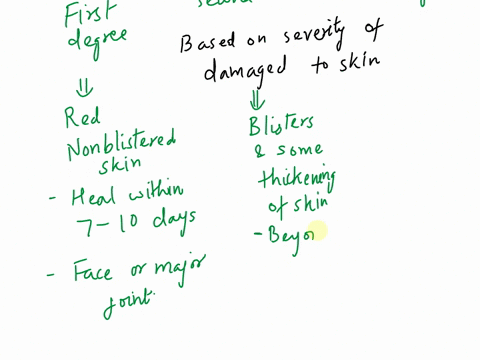 First
degree
Based on severity of
damaged to skin
⇓
Red
Nonblistered
skin
- Heal within
7-10 days
- Face or major
joint.
⇓
Blisters
& some
thickening
of skin
- Beyo